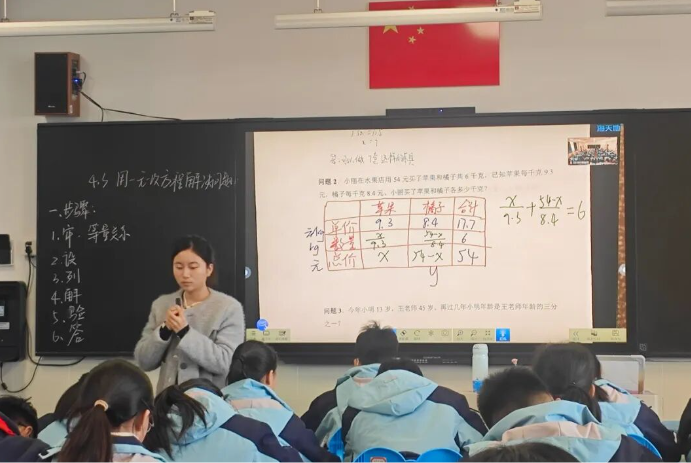 4.3 用一元一次方程解决问题
一. 步骤:
1. 审 等量关系
2. 设
3. 列
4. 解
5. 验
6. 答
问题2 小丽在水果店用 54 元买了苹果和橘子共 6 千克,已知苹果每千克 9.3
元,橘子每千克 8.4 元,小丽买了苹果和橘子各多少千克?
苹果 橘子 合计
元/kg 单价 9.3 8.4 17.7
kg 数量 x/9.3 54-x/8.4 6
元 总价 x 54-x 54
y
x/9.3 + 54-x/8.4 = 6
问题3 今年小明 13 岁,王老师 45 岁,再过几年小明年龄是王老师年龄的三分
之一?